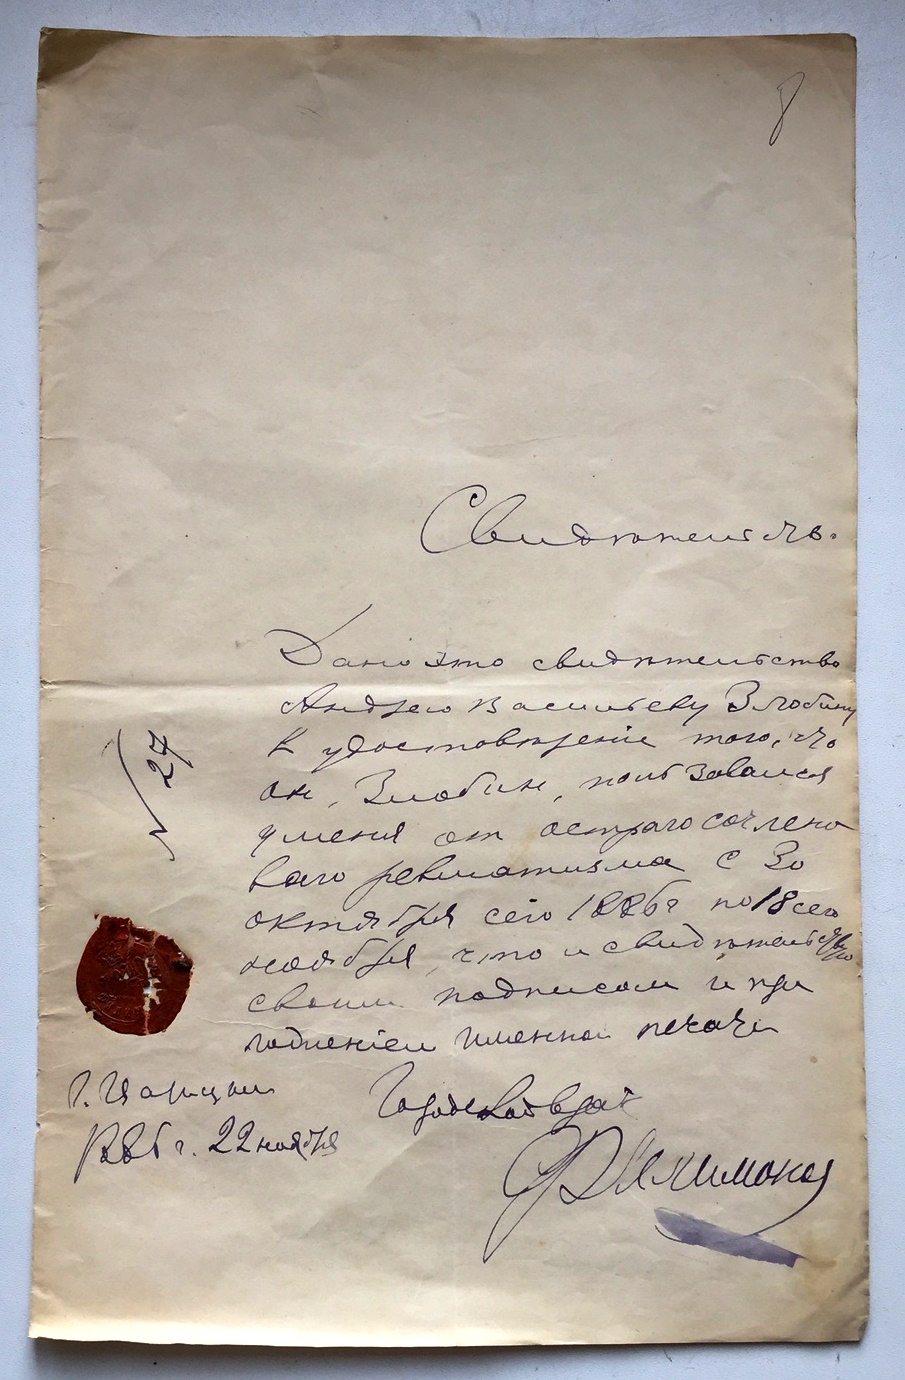 8
Свидѣтельство.
Дано это свидѣтельство
Андрею Васильеву Злобину
въ удостовѣреніе того, что
он, Злобин, пользовался
у меня от остраго сочлено
ваго ревматизма с 30
октября сего 1886 г по 18 сего
ноября, что и свидѣтельствую
своим подписом и при
ложеніем именной печати
№ 27
г. Царицын
1886 г. 22 ноября
Городской врач